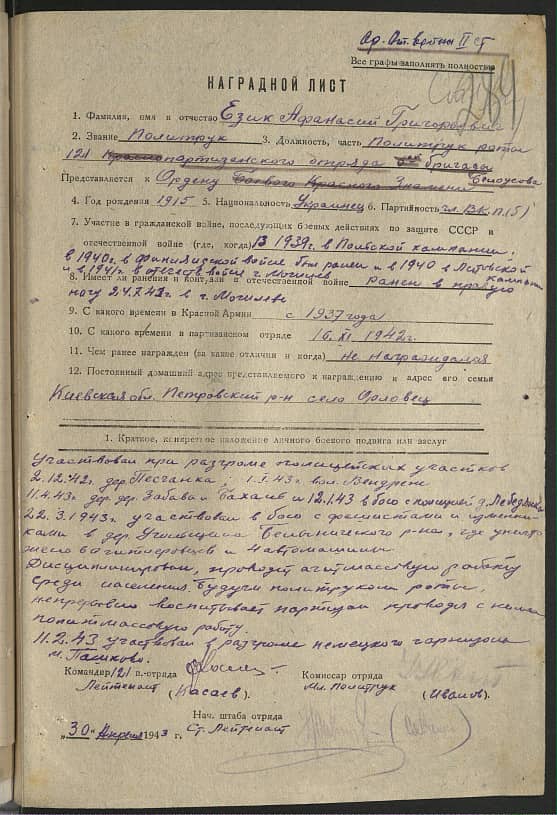 Ор. От. Войны II ст
Все графы заполнять полностью
НАГРАДНОЙ ЛИСТ
1. Фамилия, имя и отчество Език Афанасий Григорьевич
2. Звание Политрук 3. Должность, часть Политрук роты
121 Краснопартизанского отряда бригады
Белоусова
Представляется к Ордену Боевого Красного Знамени
4. Год рождения 1915 5. Национальность Украинец 6. Партийность чл. ВКП(б)
7. Участие в гражданской войне, последующих боевых действиях по защите СССР и
отечественной войне (где, когда) В 1939г. в Польской кампании,
в 1940г. в финляндской войне был ранен и в 1940 в Литовской кампании
и в 1941г. в отечест войне г. Могилев
8. Имеет ли ранения и контузии в отечественной войне Ранен в правую
ногу 24.7.41г в г. Могилеве
9. С какого времени в Красной Армии с 1937 года
10. С какого времени в партизанском отряде 16. XI. 1942г.
11. Чем ранее награжден (за какие отличия и когда) не награждался
12. Постоянный домашний адрес представляемого к награждению и адрес его семьи
Киевская обл. Петровский р-н село Орловец
1. Краткое, конкретное изложение личного боевого подвига или заслуг
Участвовал при разгроме полицейских участков
2.12.42г. дер. Песчанка, 1.I.43г. вол. Вендриж
11.4.43г. дер. дер. Забава и и 12.1.43 в бою с полицией д. Лебедянка
22.3.1943г. участвовал в бою с фашистами и изменни-
ками в дер. Белыничского р-на, где уничто-
жено гитлеровцев и 4 автомашины
Дисциплинирован, проводит агитмассовую работу
среди населения. Будучи политруком роты,
непрерывно воспитывает партизан проводя с ними
политмассовую работу.
11.2.43 участвовал в разгроме немецкого гарнизона
м. Пашково.
Командир 121- отряда Комиссар отряда
Лейтенант (Касаев). Мл. Политрук (Иванов).
Нач. штаба отряда
„30“ Апреля 1943 г. Ст. Лейтенант